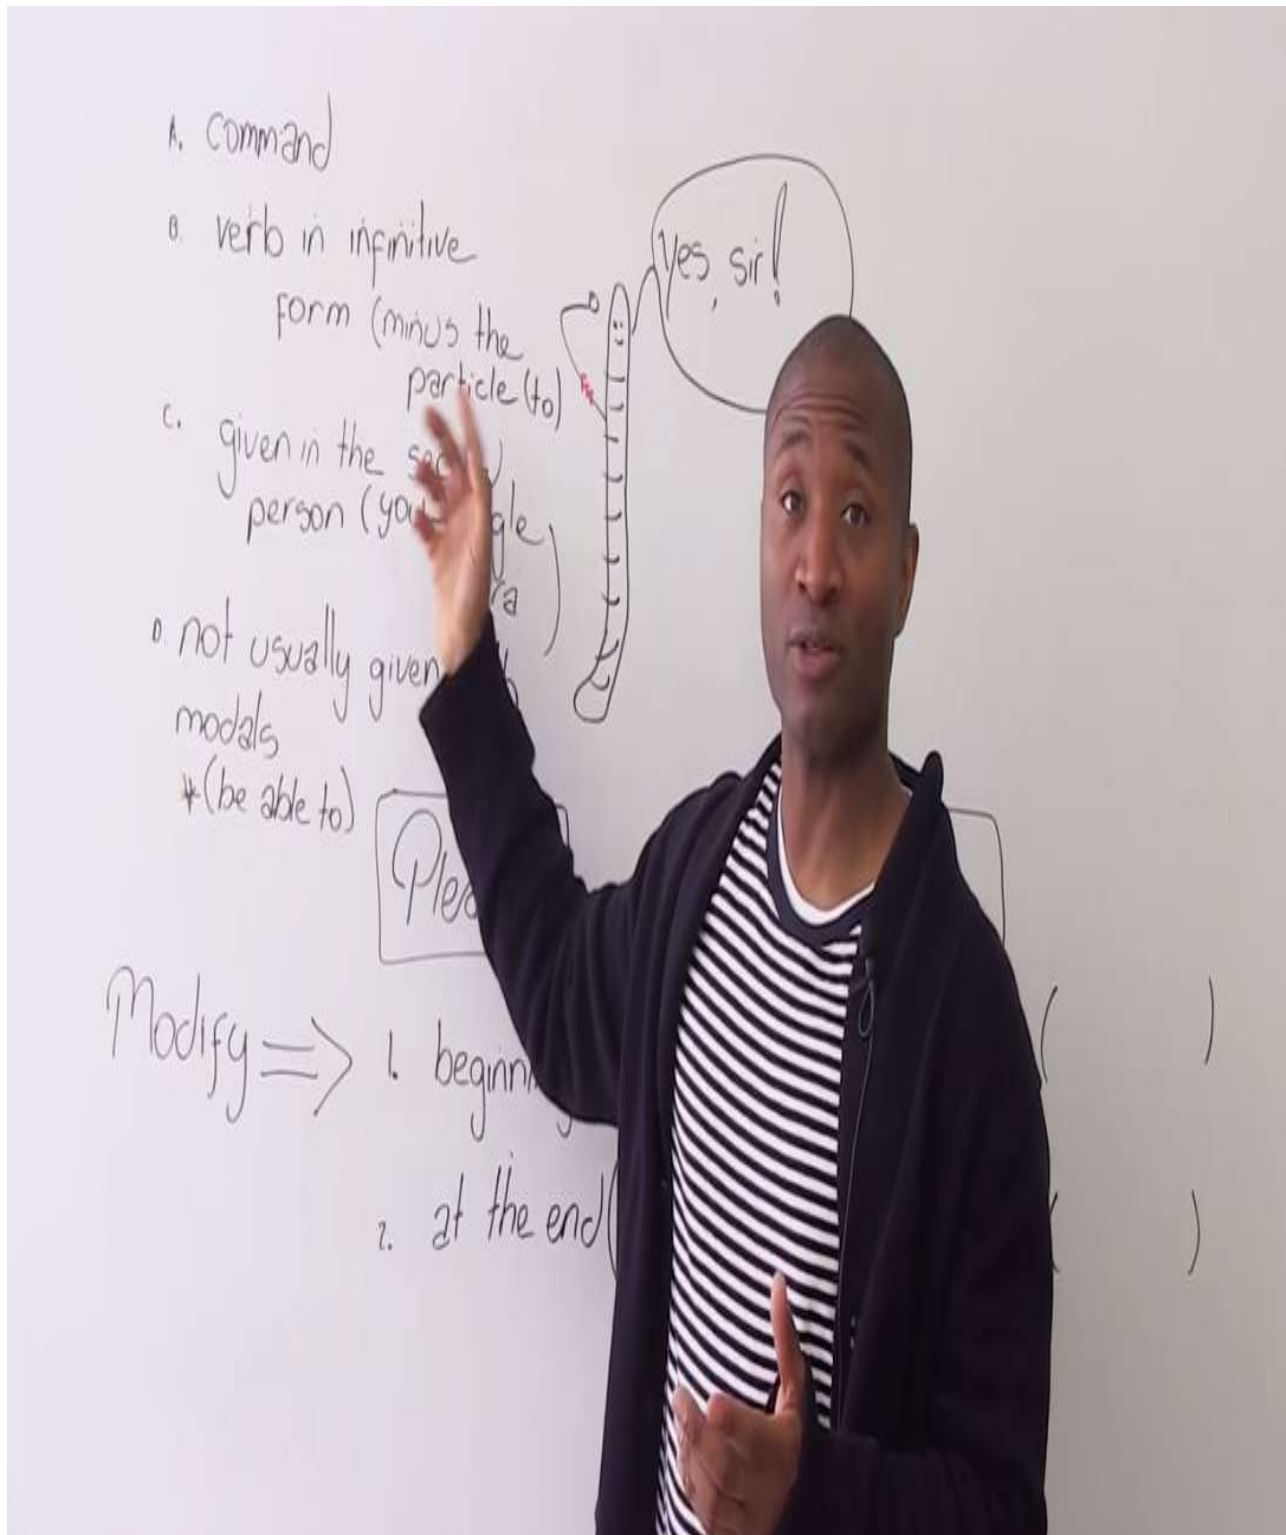 A. command
B. verb in infinitive
form (minus the
particle (to)
C. given in the
person (you
D. not usually given
modals
*(be able to)
yes, sir!
Modify ⇒ 1.
2. at the end (